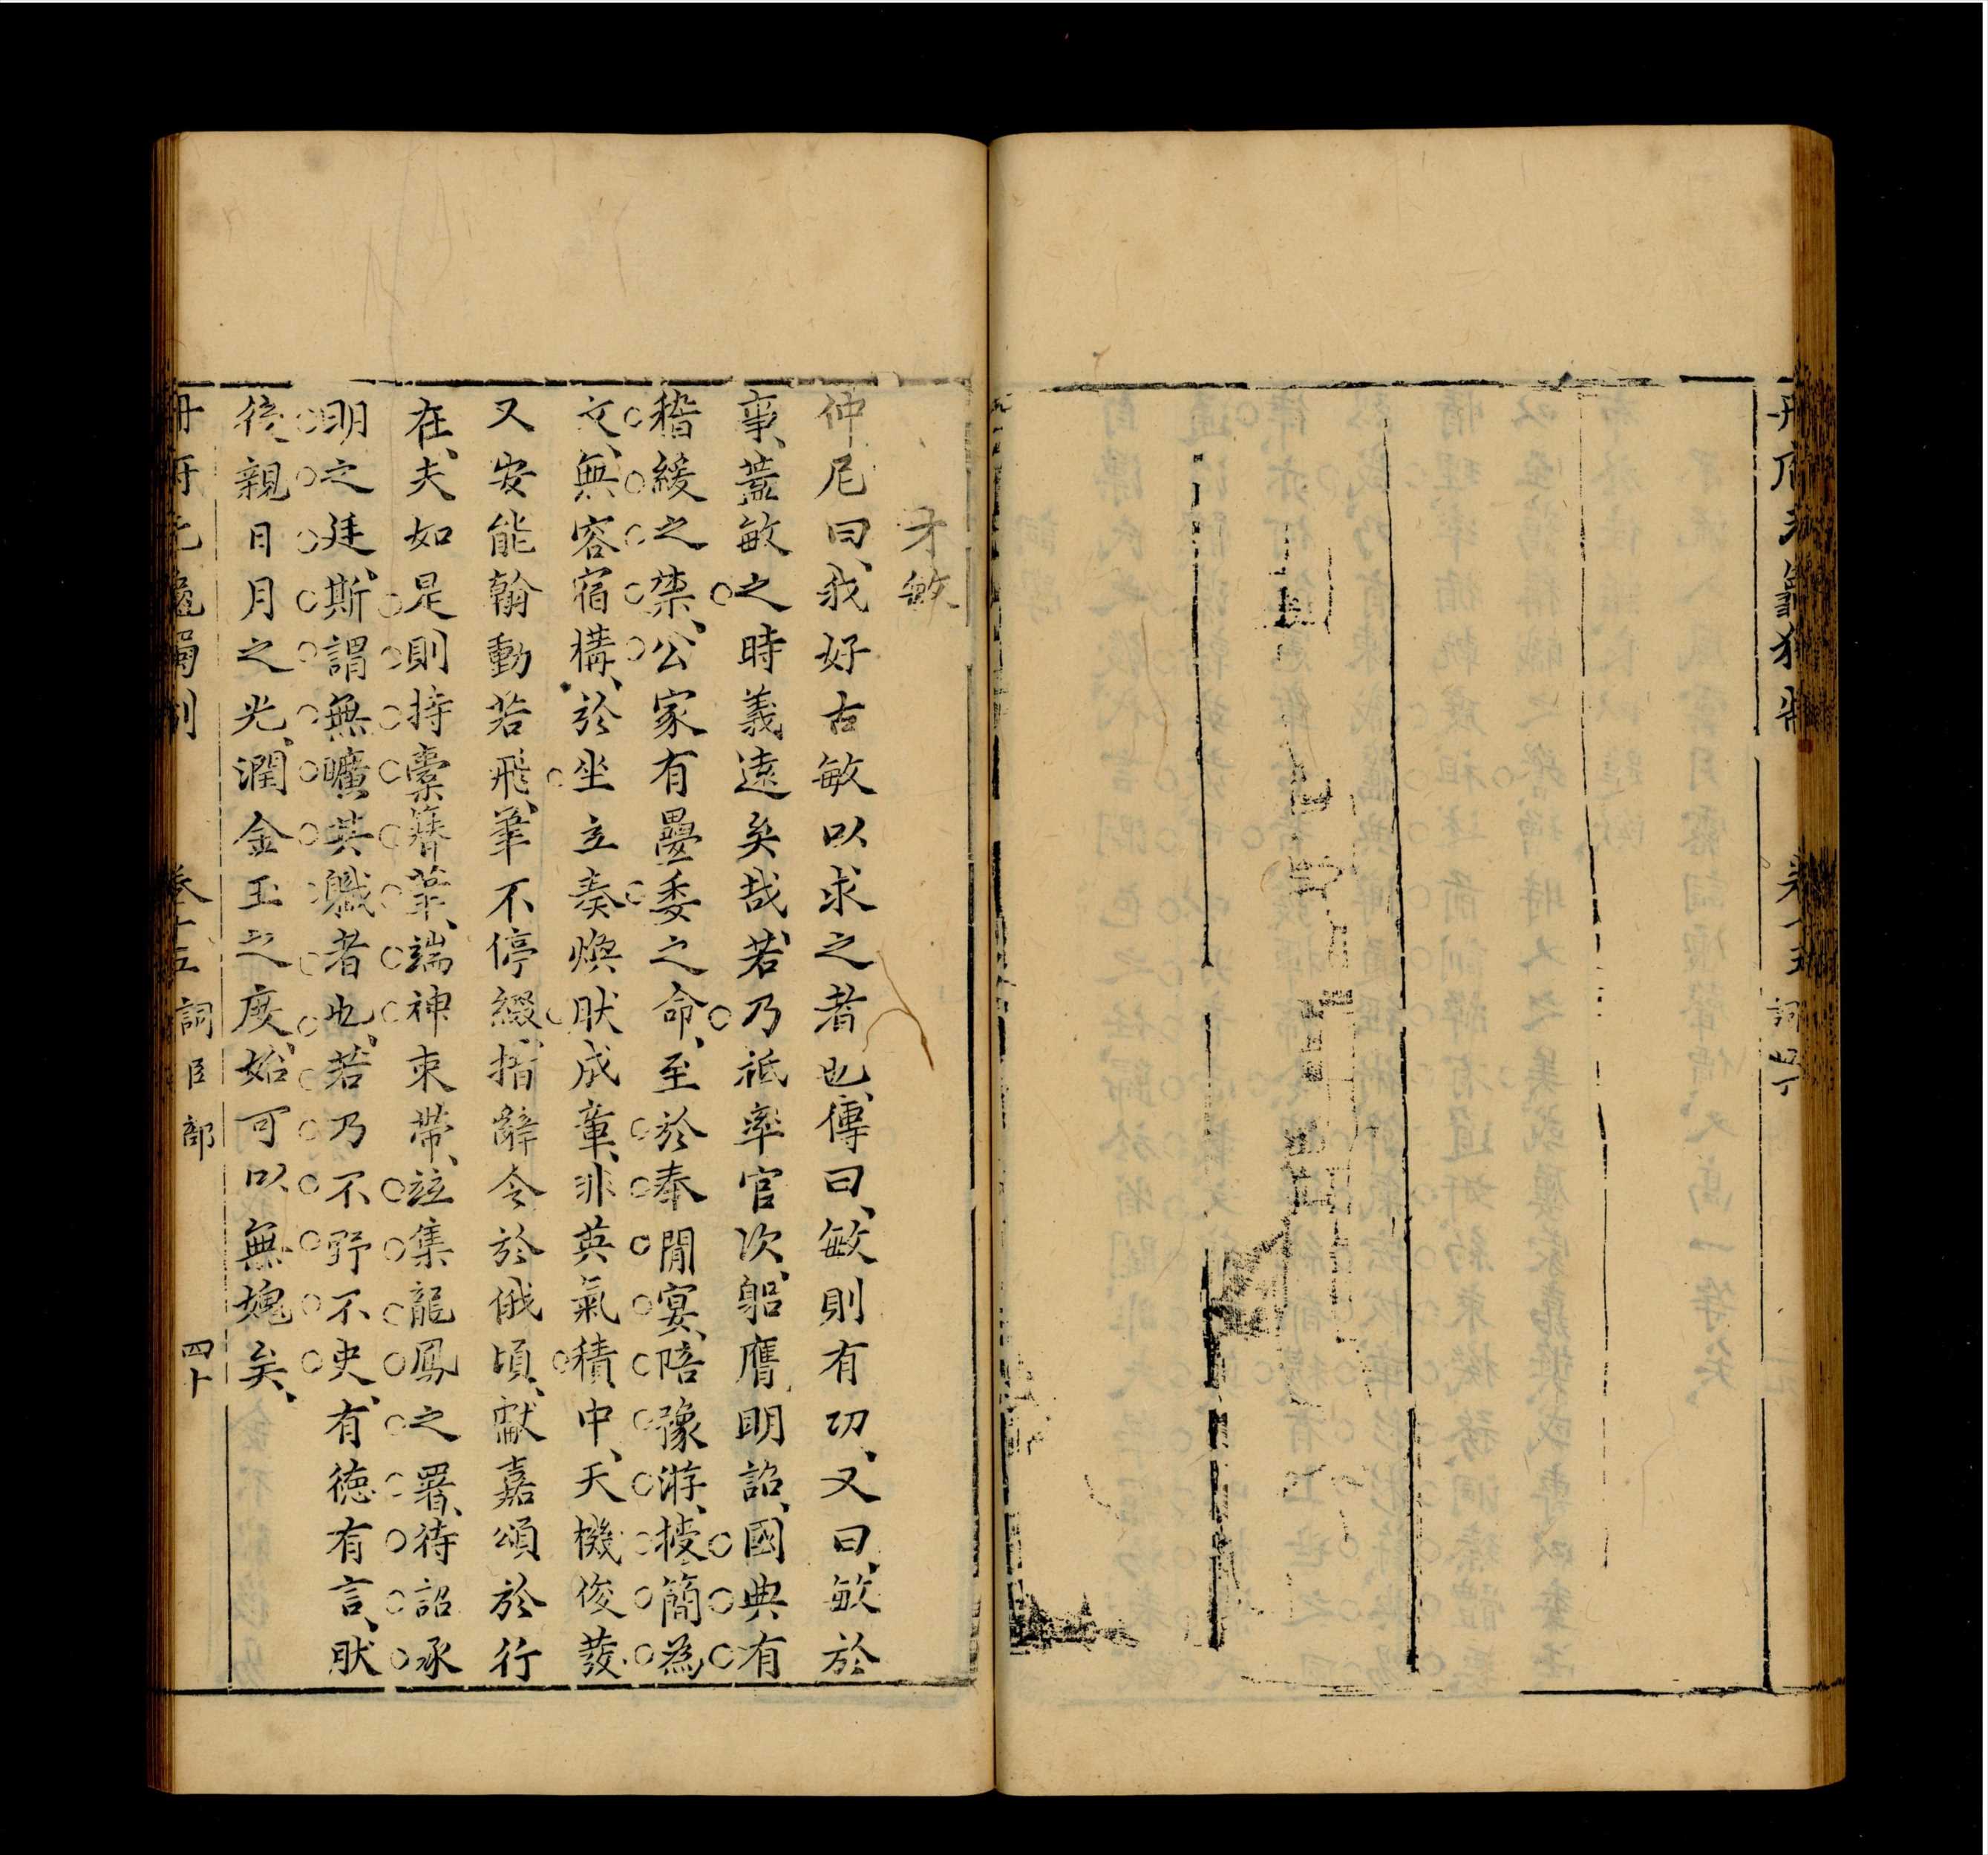 冊府元龜獨制 卷十五 詞臣部
才敏
仲尼曰、我好古敏以求之者也、傳曰、敏則有功、又曰、敏於
事、蓋敏之時義遠矣哉、若乃祗率官次、躬膺明詔、國典有
稽緩之禁、公家有疊委之命、至於奉閒宴、陪豫游、授簡為
文、無容宿構、於坐立奏煥肰成章、非英氣積中、天機俊發
又安能翰動若飛、筆不停綴、措辭令於俄頃、獻嘉頌於行
在、夫如是則持槖簪筆、端神束帶、竝集龍鳳之署、待詔承
明之廷、斯謂無曠其職者也、若乃不野不史、有德有言、肰
後親日月之光、潤金玉之度、始可以無媿矣、
冊府元龜獨制 卷十五 詞臣部 四十